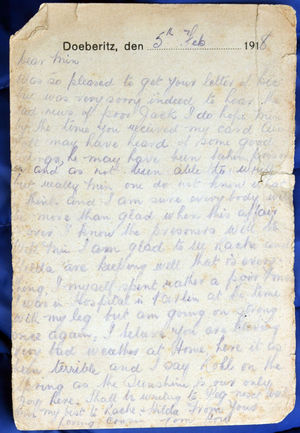 Doeberitz, den 5th of Feb 1918
Dear Min
Was so pleased to get your letter of Dec
but was very sorry indeed to hear the
bad news of poor Jack I do hope Min
by the time you received my card
may have heard of some good
he may have been taken prison
er and as not been able to write
but really Min one do not know what
think and I am sure everybody will
be more than glad when this affair
over I know the prisoners will to
Min I am glad to see Rache and
Hilda are keeping well that is every
thing, I myself spent rather a poor Xmas
was in Hospital in Berlin at the time
with my leg but am going on strong
once again, I believe you are having
very bad weather at Home here it as
been terrible and I hold on the
Spring as the Sunshine is our only
here. Shall be writing to Peg next week
my best to Rache & Hilda From Your
loving Cousin Tom